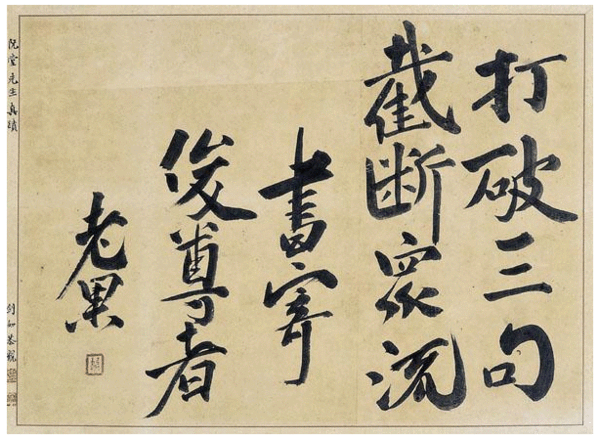 打破三句
截斷衆流
書寄
俊尊者
老果
阮堂先生真蹟